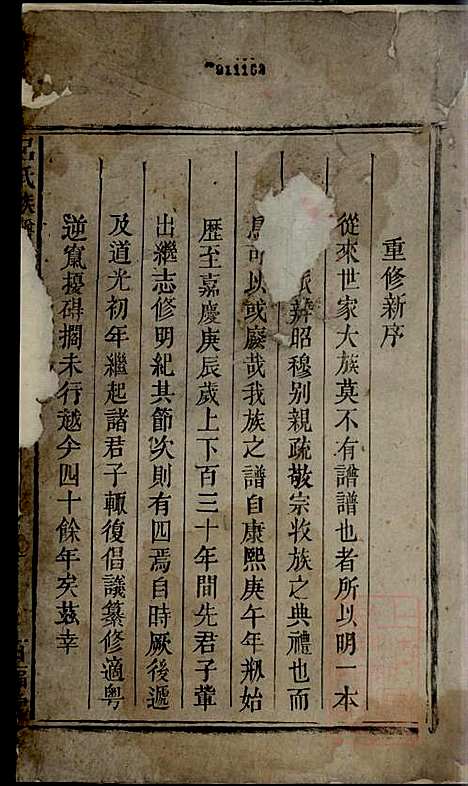 911152
重修新序
從來世家大族莫不有譜譜也者所以明一本
辨昭穆別親疏敬宗收族之典禮也而
可以或廢哉我族之譜自康熙庚午年剏始
歷至嘉慶庚辰歲上下百三十年間先君子輩
出繼志修明紀其節次則有四焉自時厥後遞
及道光初年繼起諸君子輙復倡議纂修適粵
逆竄擾碍擱未行越今四十餘年矣玆幸
呂氏族譜